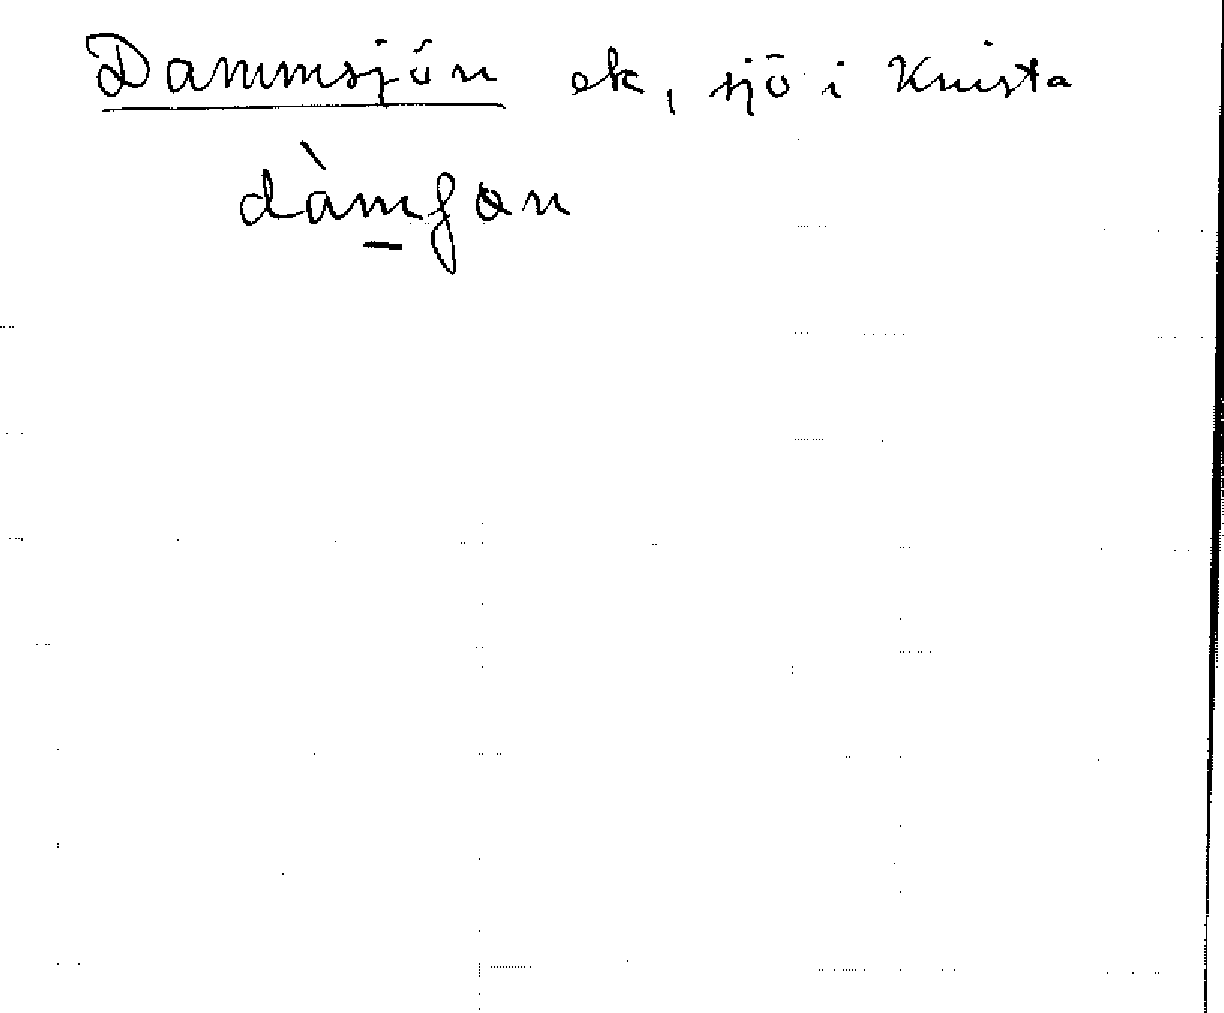 Dammsjön ek, sjö i Knista
dàmʃαn